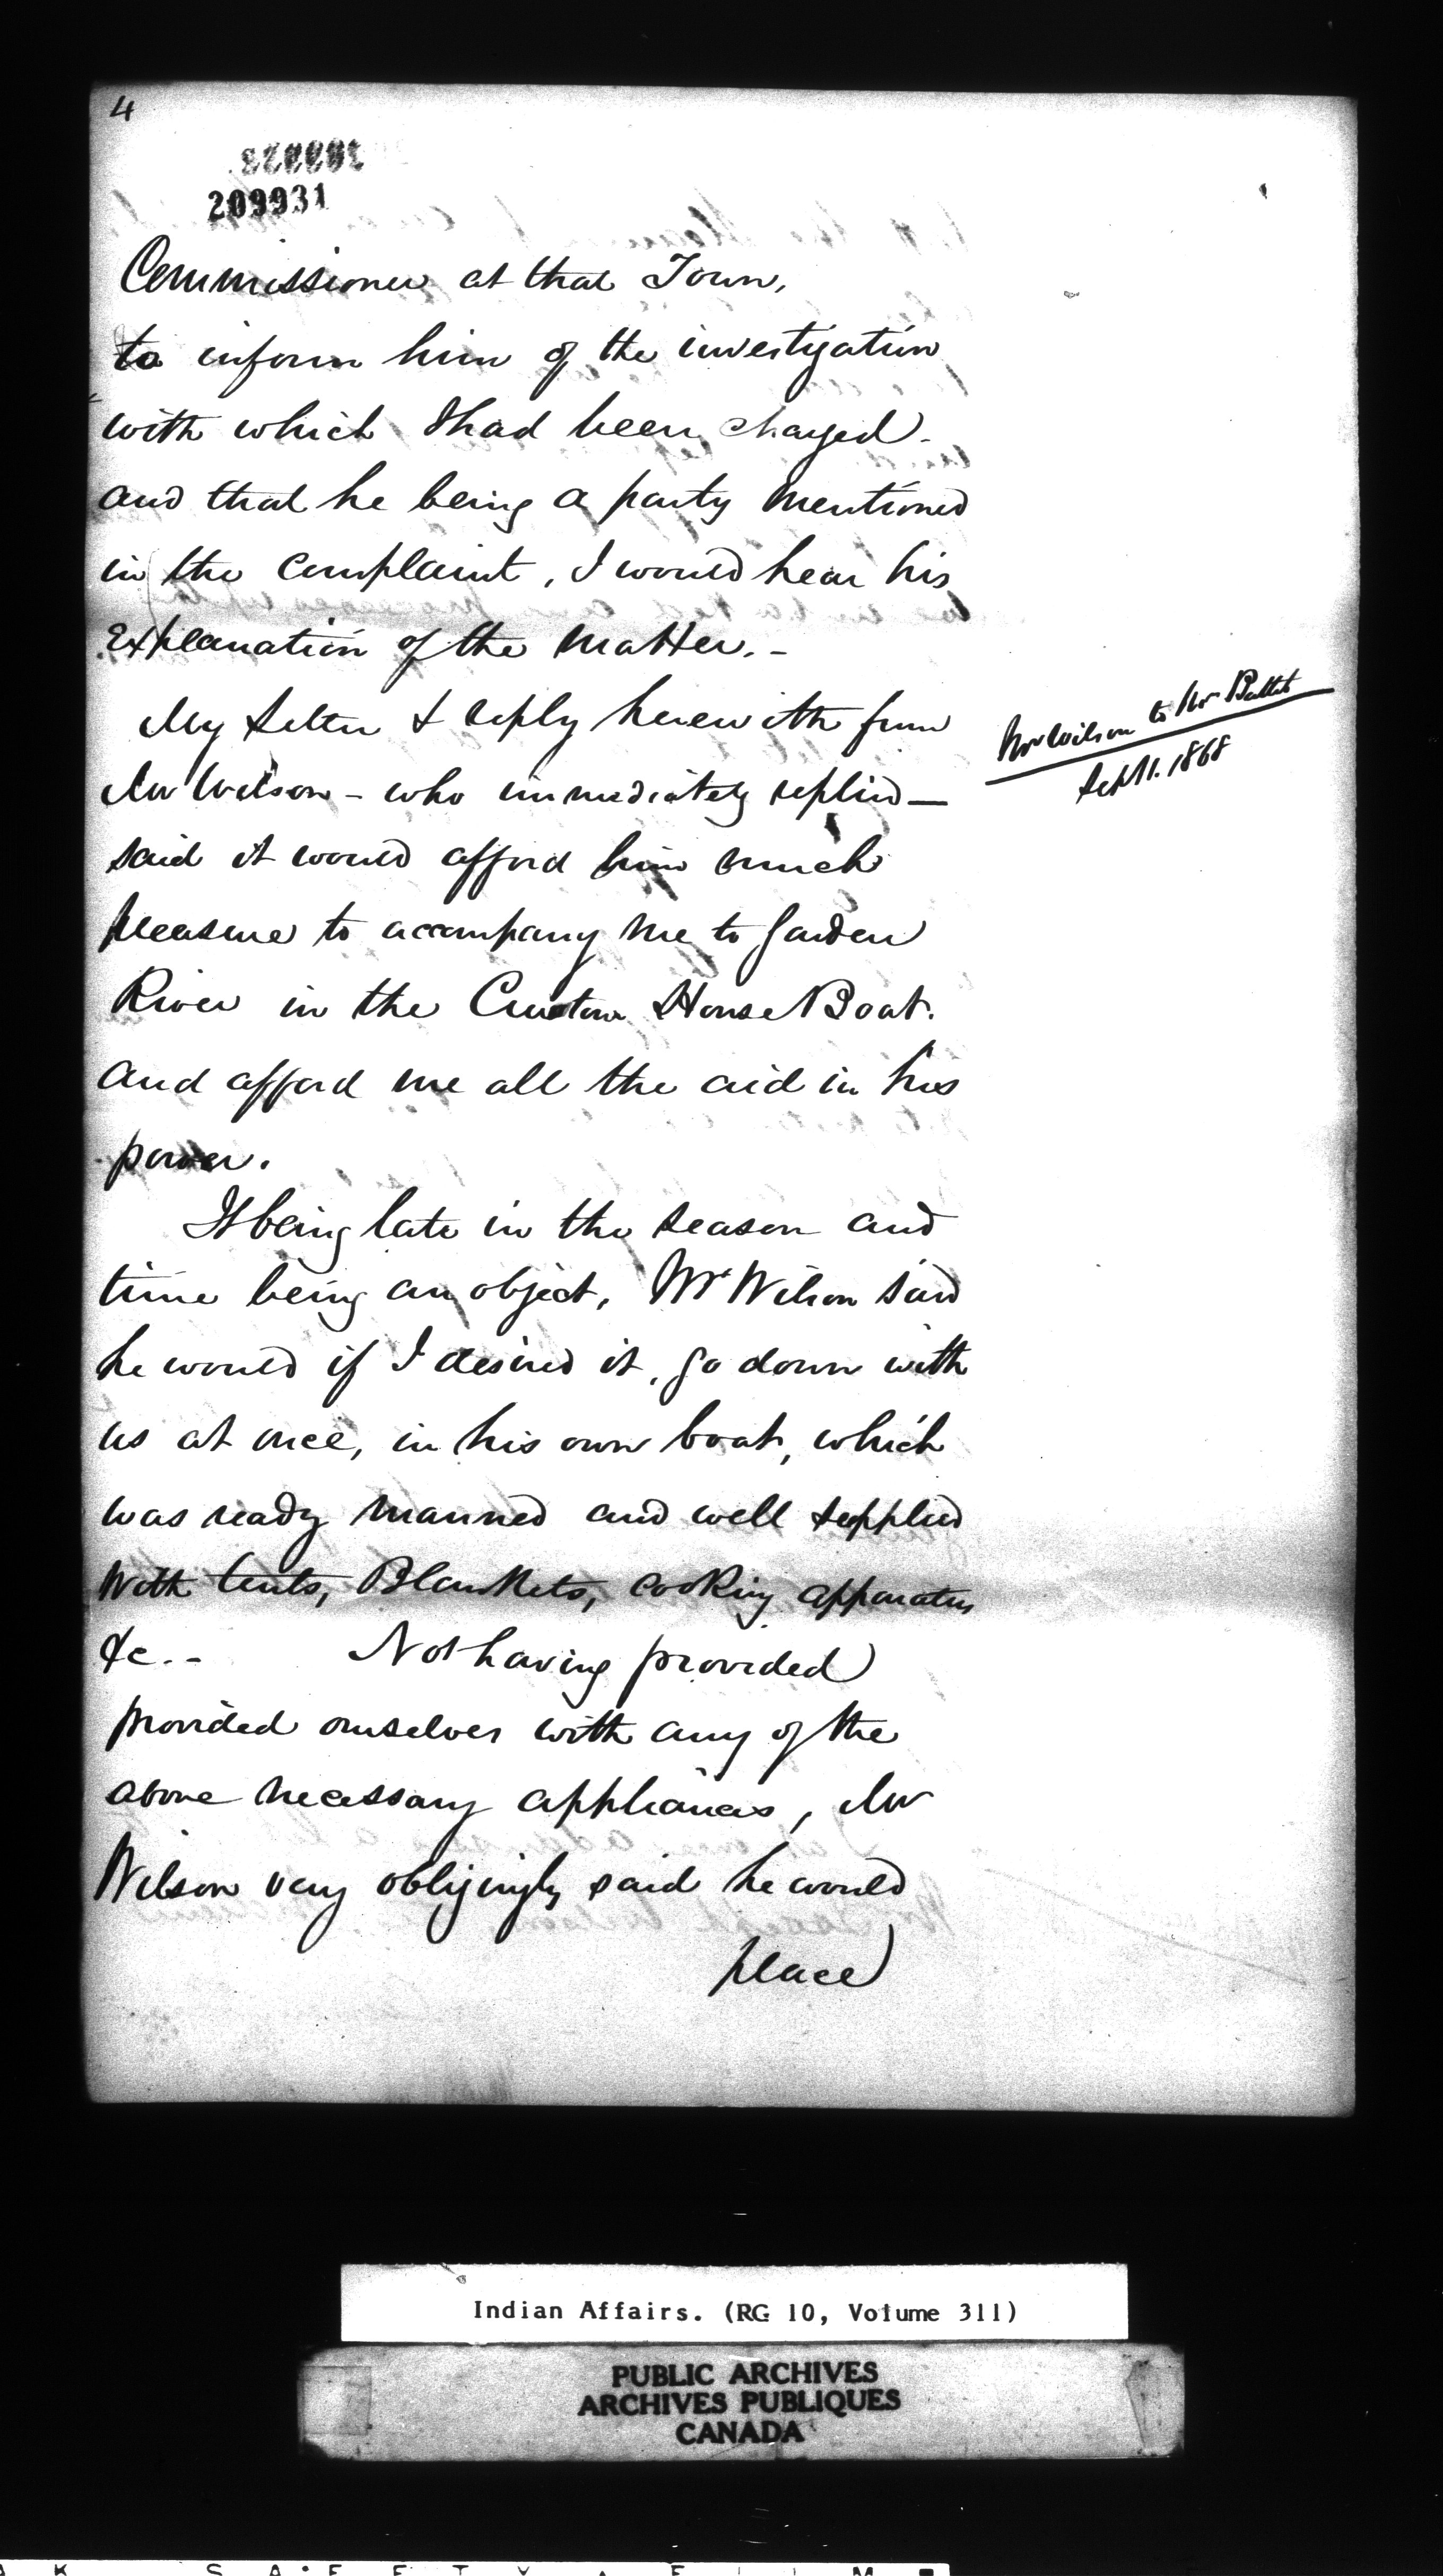 4
209931
Commissioner at that Town,
to inform him of the investigation
with which I had been charged.
and that he being a party mentioned
in the complaint, I would hear his
Explanation of the matter. -
My letter & reply herewith from
Mr Wilson - who immediately replied -
said it would afford him much
pleasure to accompany me to Garden
River in the Custom House Boat.
and afford me all the aid in his
power.
Mr Wilson to Mr
Sept 1. 1868
It being late in the season and
time being an object, Mr Wilson said
he would if I desired it, go down with
us at once, in his own boat, which
was ready manned and well supplied
with tents, Blankets, cooking apparatus
&c. - Not having provided
provided ourselves with any of the
above necessary appliances, Mr
Wilson very obligingly said he would
place
Indian Affairs. (RG 10, Volume 311)
PUBLIC ARCHIVES
ARCHIVES PUBLIQUES
CANADA